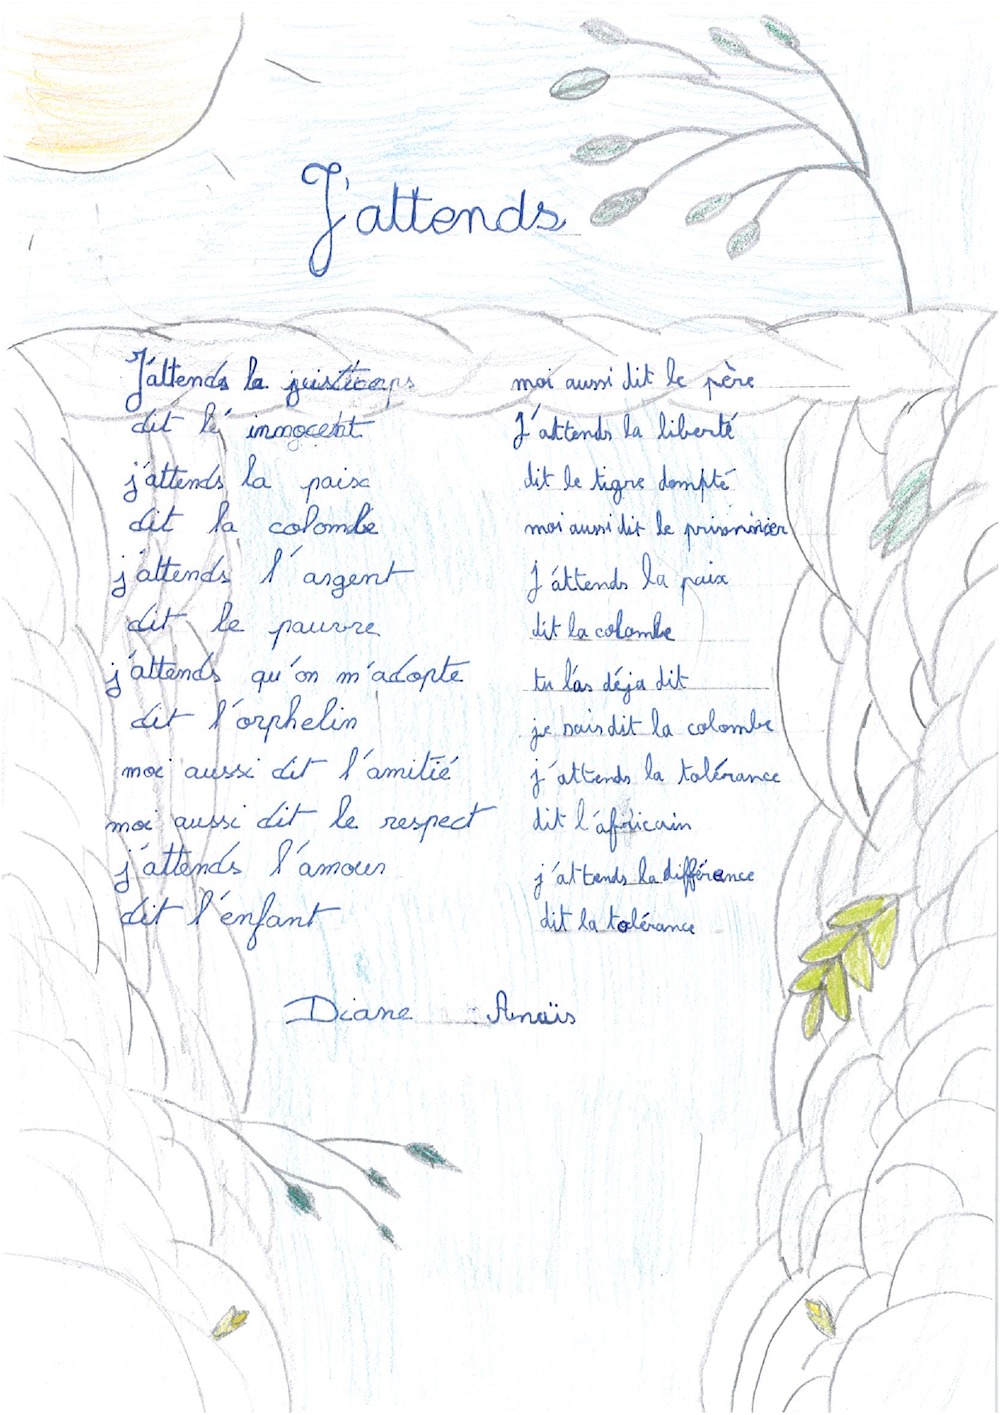 J'attends
J'attends la
dit l'innocent
j'attends la paix
dit la colombe
j'attends l'argent
dit le pauvre
j'attends qu'on m'adopte
dit l'orphelin
moi aussi dit l'amitié
moi aussi dit le respect
j'attends l'amour
dit l'enfant
moi aussi dit le père
J'attends la liberté
dit le tigre dompté
moi aussi dit le prisonnier
J'attends la paix
dit la colombe
tu l'as déja dit
je sais dit la colombe
j'attends la tolérance
dit l'africain
j'attends la différence
dit la tolérance
Diane Anaïs